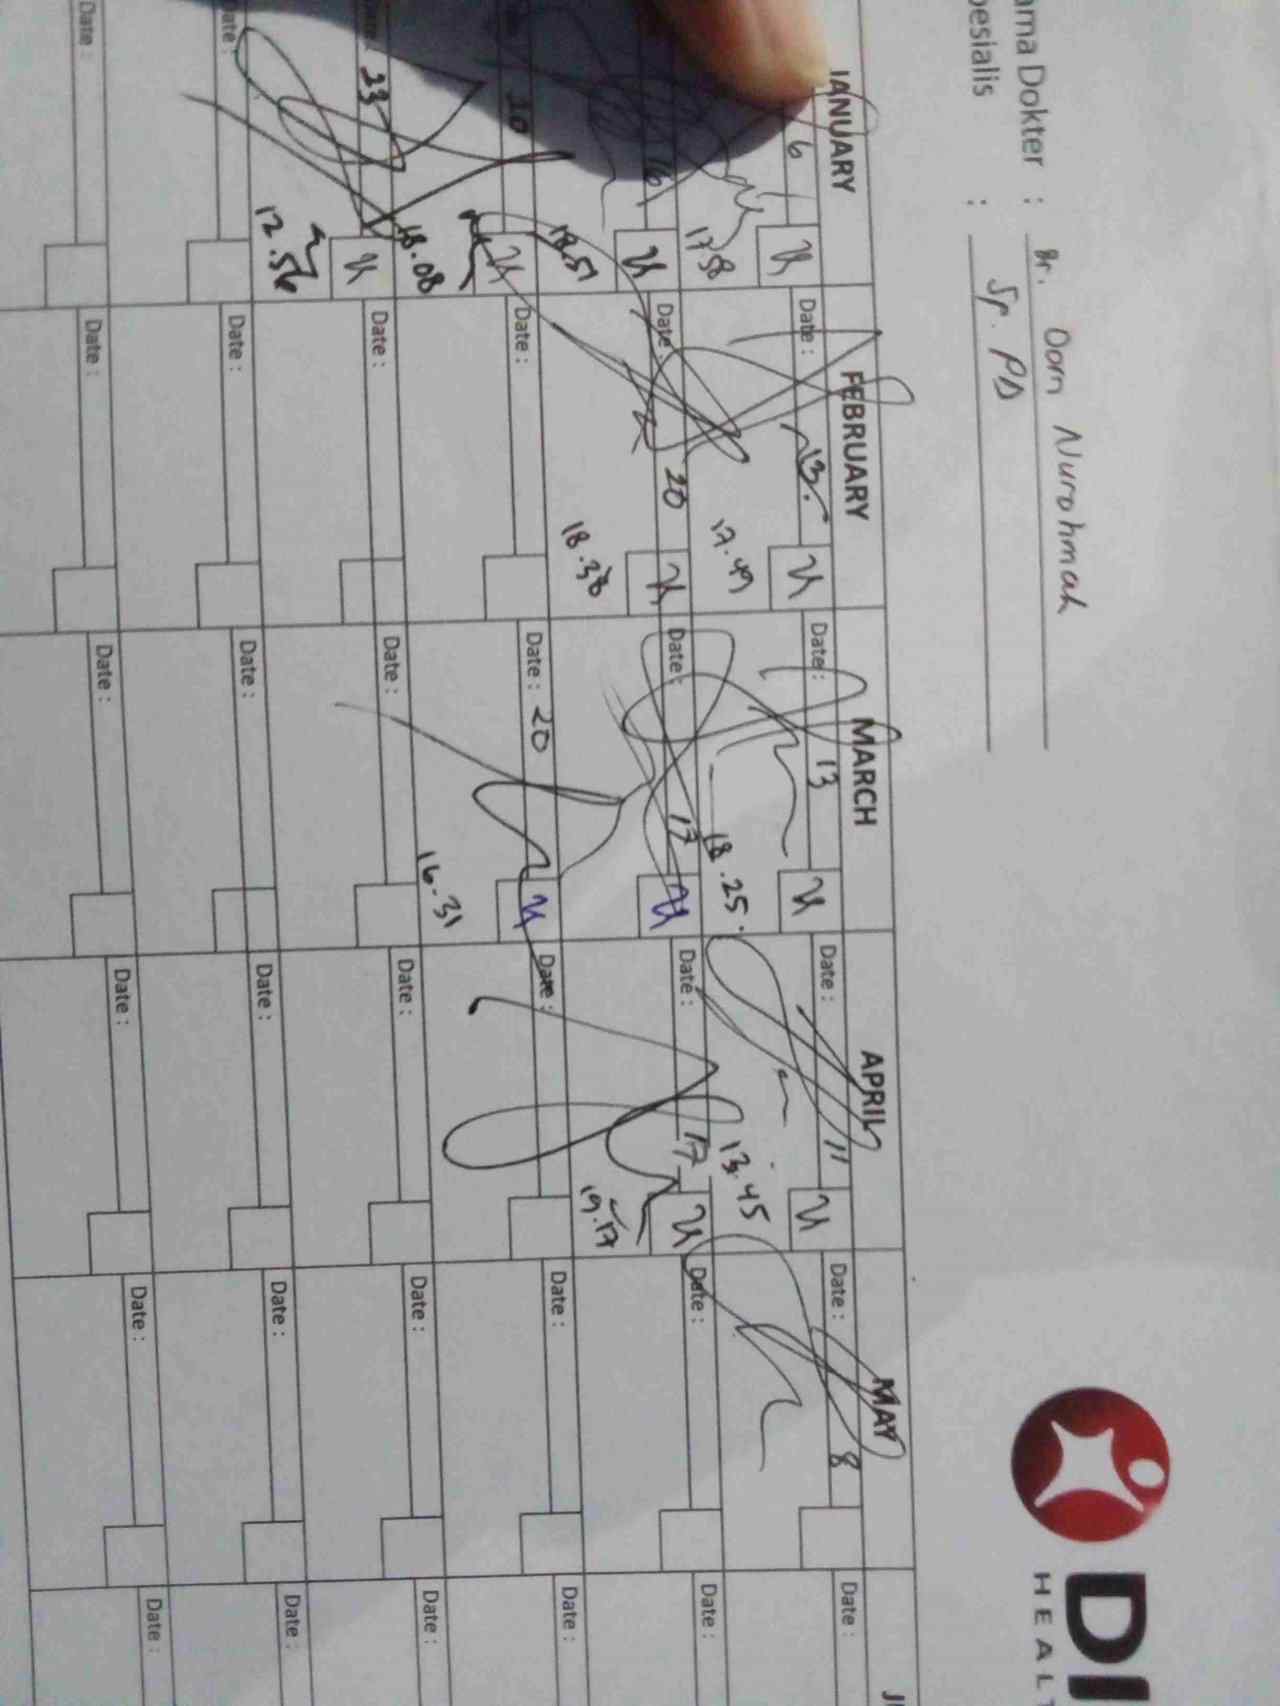 DI
HEAL
ama Dokter : Dr. Dorn Nurohmah
pesialis : Sp. PD
JANUARY FEBRUARY MARCH APRIL MAY J
6 Date : 13. Date : 13 Date : 11 Date : 8 Date :
17.58 17.49 18.25. 13.45
16 Date : 20 Date : 17 Date : 17 Date : Date :
18.51 18.38 19.17
20 Date : Date : 20 Date : Date : Date :
18.08 16.31
Date : 23 Date : Date : Date : Date : Date :
12.56
Date : Date : Date : Date : Date : Date :
Date : Date : Date : Date : Date : Date :